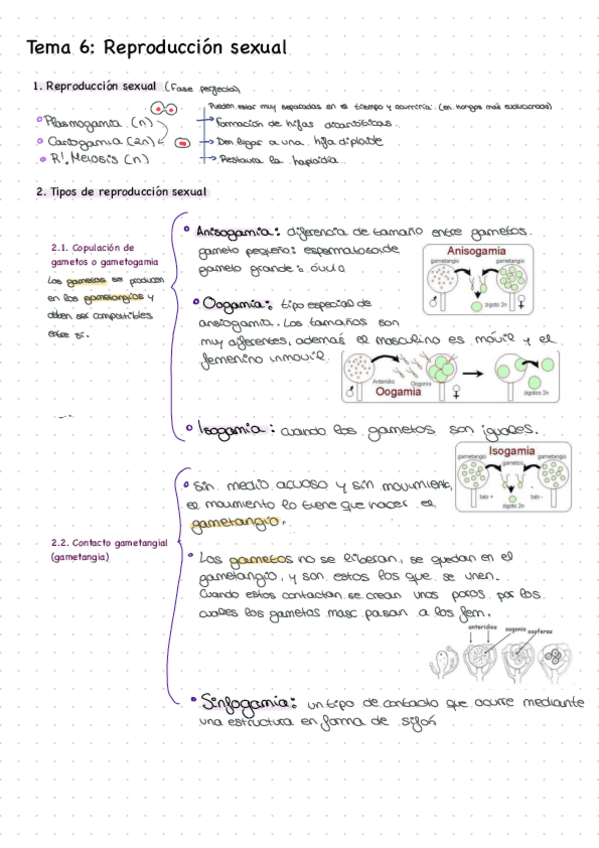 Tema 6: Reproducción sexual
1. Reproducción sexual (Fase perfecta)
Pueden estar muy separadas en el tiempo y ocurrir (en hongos más evolucionados)
Plasmogamia (n)
Formación de hifas dicarióticas.
Cariogamia (2n)
Dan lugar a una hifa diploide
R!. Meiosis (n)
Restaura la haploidía.
2. Tipos de reproducción sexual
2.1. Copulación de
gametos o gametogamia
Los gametos se producen
en los gametangios y
deben ser compatibles
entre sí.
Anisogamia: diferencia de tamaño entre gametos.
gameto pequeño: espermatozoide
gameto grande: óvulo
Anisogamia
gametangio
gametangio
zigoto 2n
Oogamia: tipo especial de
anisogamia. Los tamaños son
muy diferentes, además el masculino es móvil y el
femenino inmóvil.
Anteridio
Oogonio
Oogamia
zigotos 2n
Isogamia: cuando los gametos son iguales.
Isogamia
gametangio
gametangio
gametos
talo +
talo -
zigoto 2n
2.2. Contacto gametangial
(gametangia)
Sin medio acuoso y sin movimiento,
el movimiento lo tiene que hacer el
gametangio.
Los gametos no se liberan, se quedan en el
gametangio, y son estos los que se unen.
Cuando estos contactan se crean unos poros por los
cuales los gametos masc pasan a los fem.
anteridios
oogonio
oosferas
Sinfogamia: un tipo de contacto que ocurre mediante
una estructura en forma de sifón